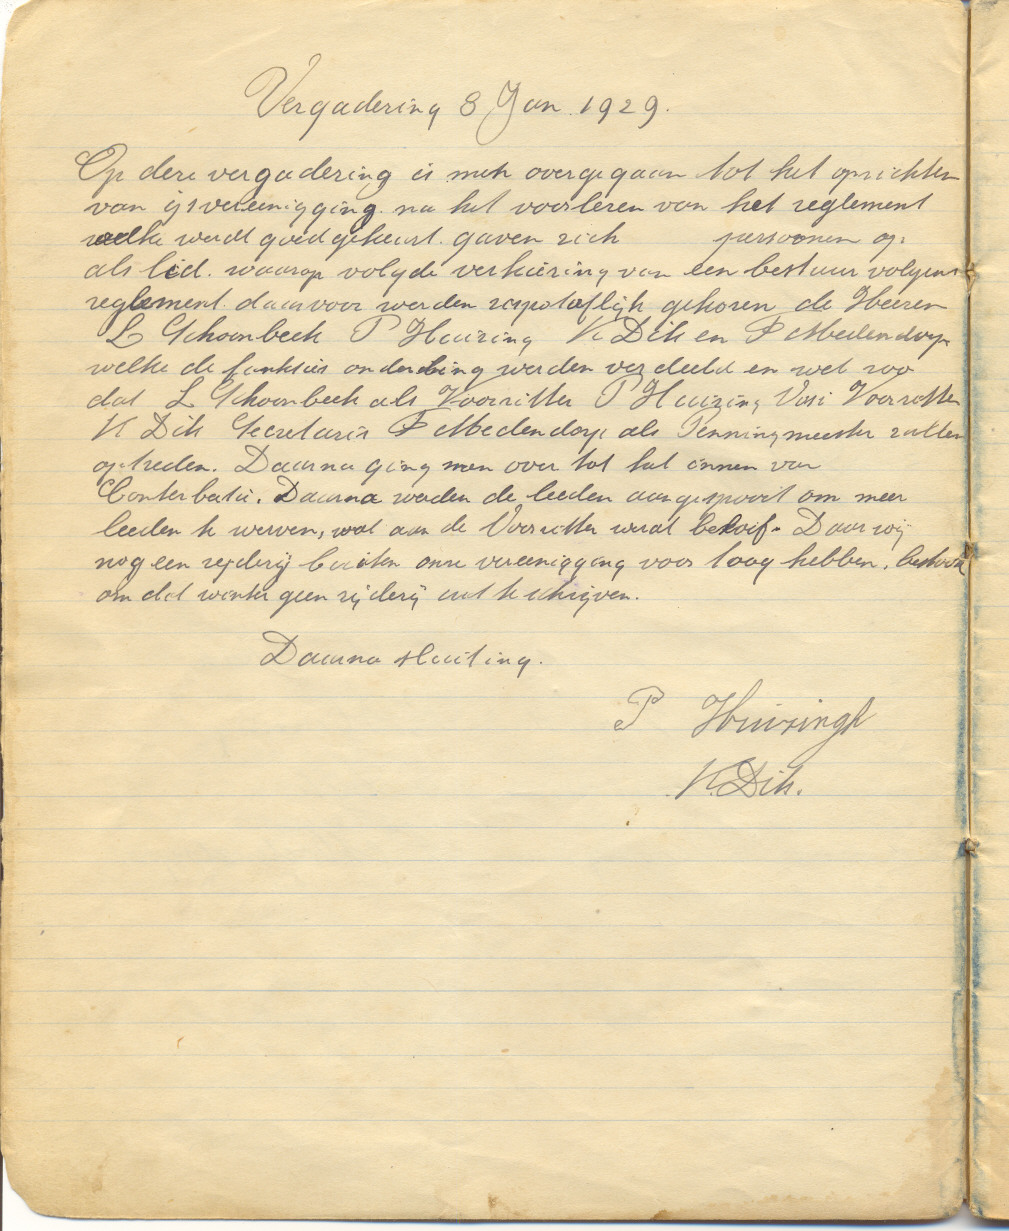 Vergadering 8 Jan. 1929.
Op deze vergadering is men overgegaan tot het oprichten
van ijsvereenigging. na het voorlezen van het reglement
welke werdt goedgekeurt. gaven zich persoonen op
als lid. waarop volgde verkiezing van een bestuur volgens
reglement. daarvoor werden gekozen de Heeren
L Schoonbeek P Huizing K Dik en F Medendorp
welke de funksies onderling werden verdeeld en wel zoo
dat L Schoonbeek als Voorzitter P Huizing Vosi Voorzitter
K Dik Secretaris F Medendorp als Penningmeester zullen
optreden. Daarna ging men over tot het innen van
Conterbutie. Daarna woden de leeden aangespoort om meer
leeden te werven, wat aan de Voorzitter werdt Daar wij
nog een rijderij buiten onze vereenigging voor laag hebben.
om dit winter geen rijderij uit te schrijven.
Daarna sluiting.
P Huizingh
K. Dik.